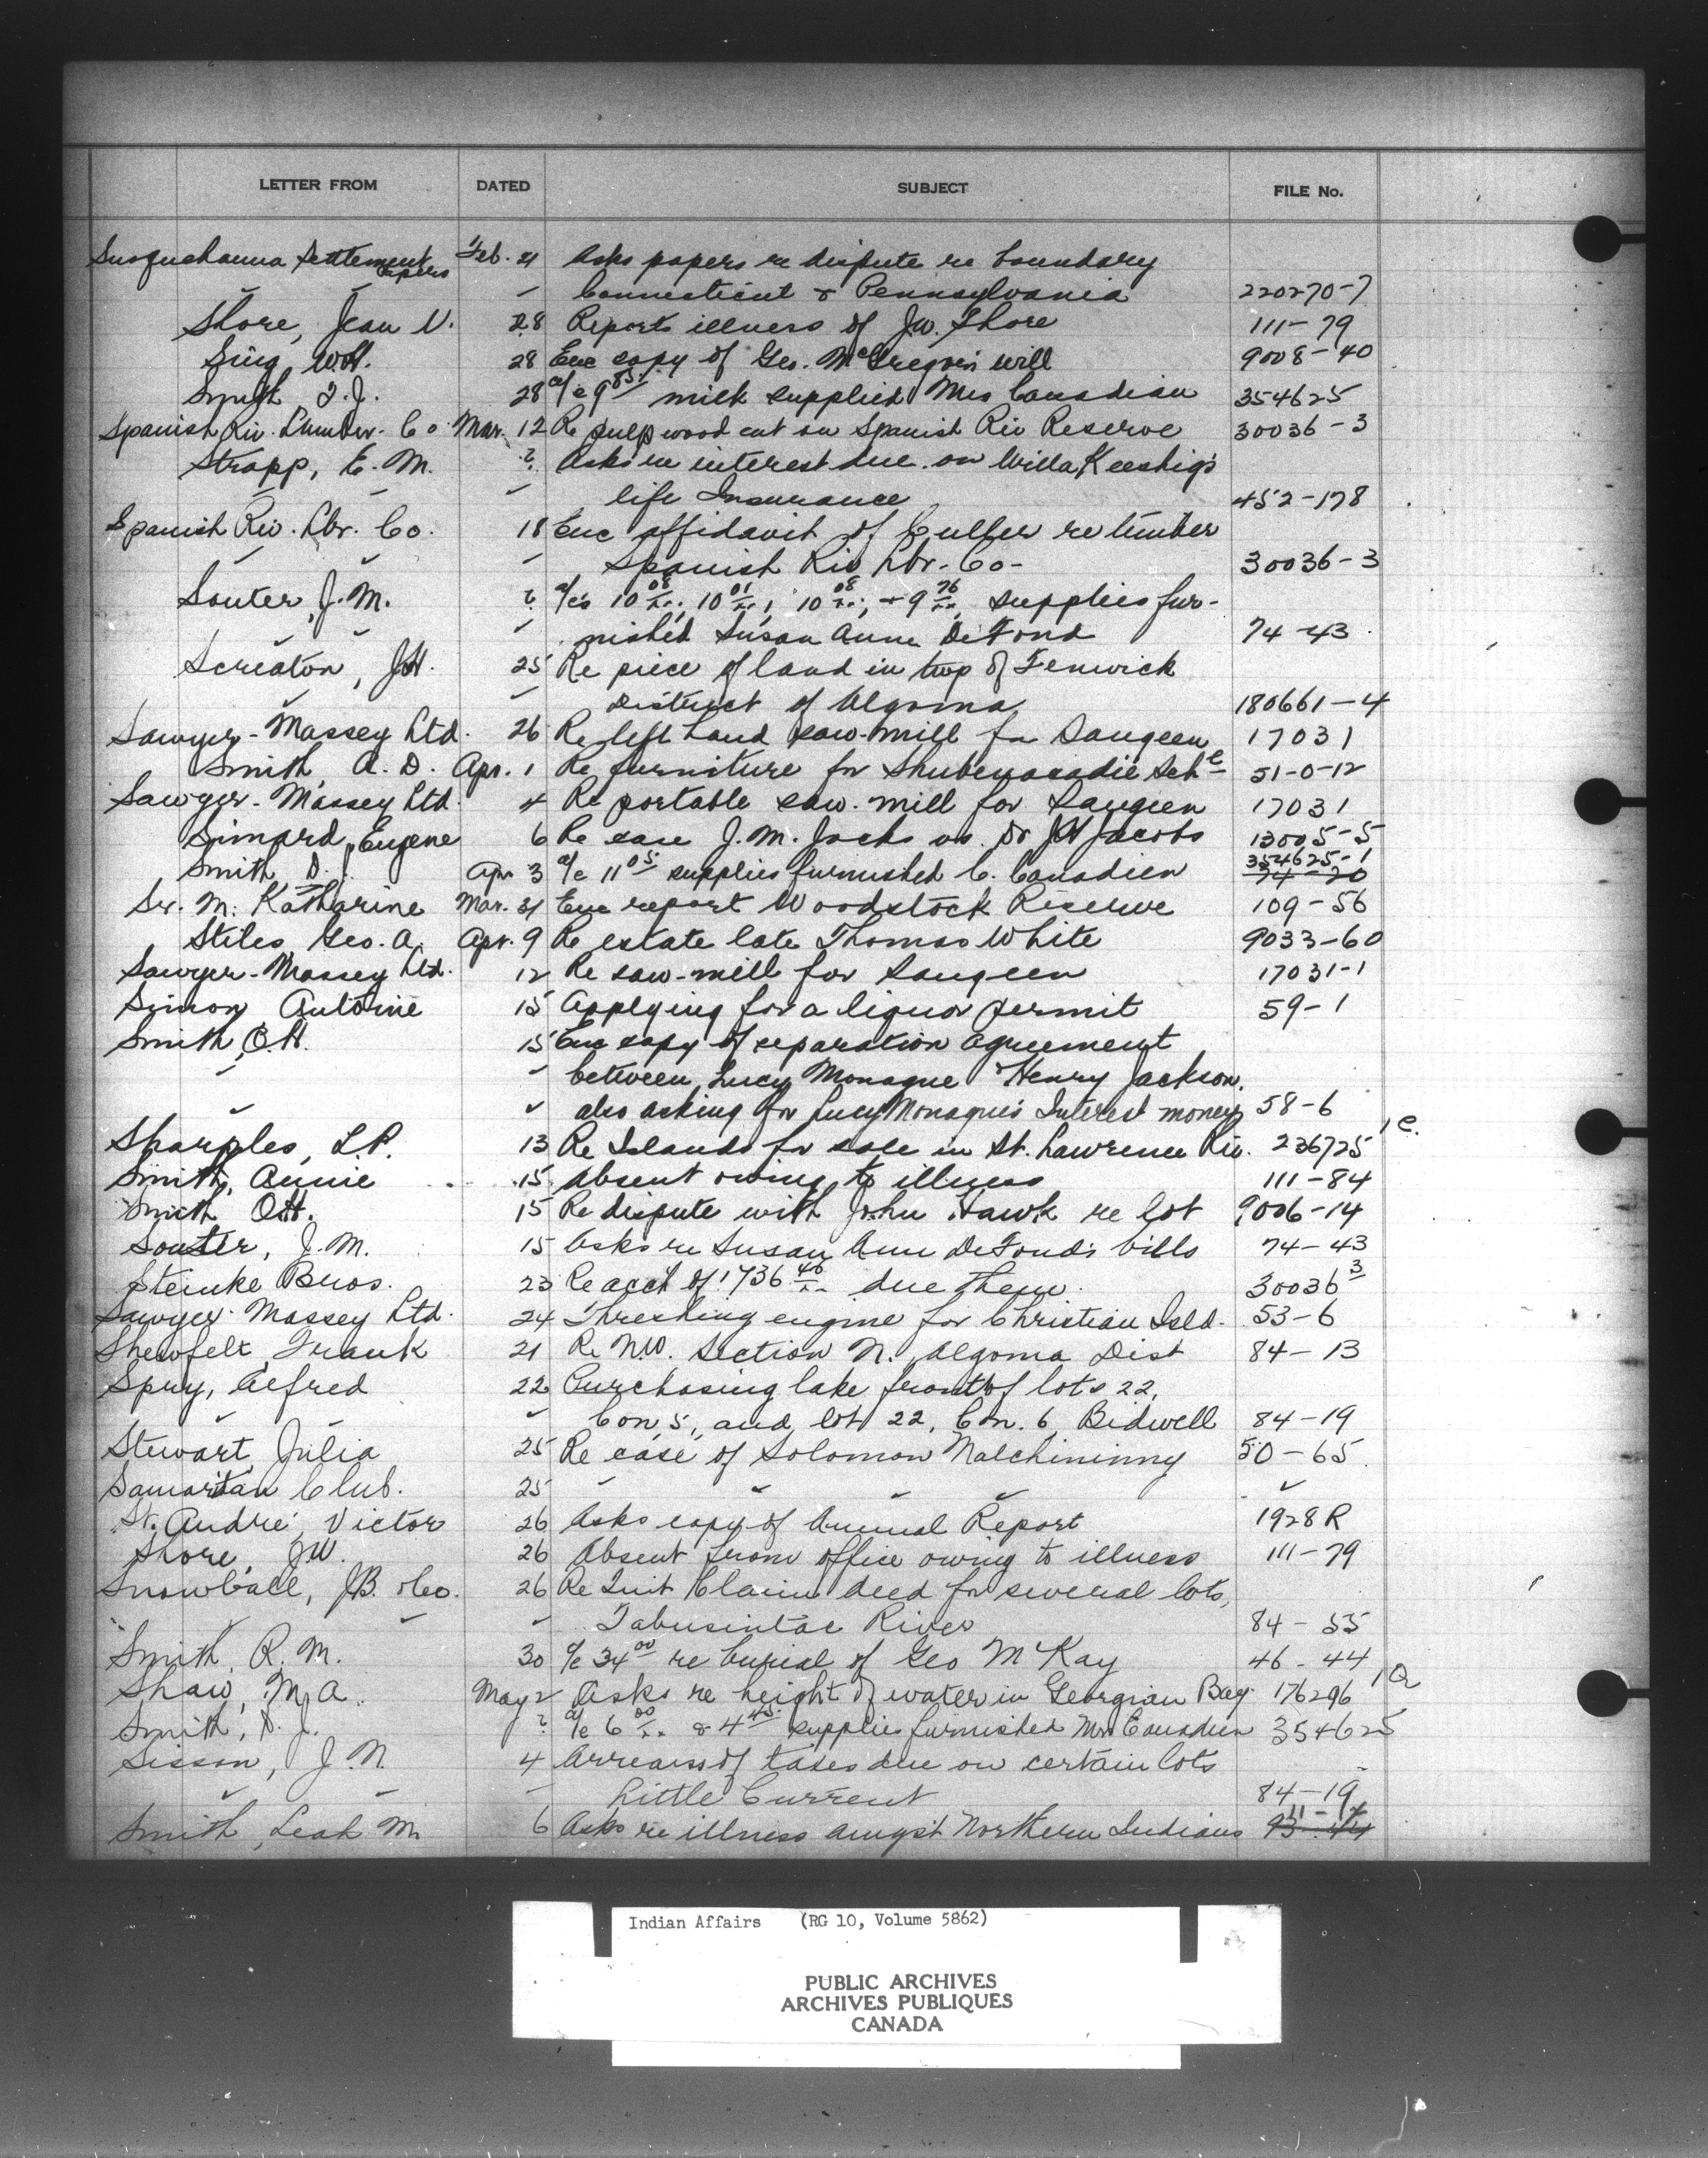 LETTER FROM DATED SUBJECT FILE No.
Susquehanna Settlement Papers Feb. 21 Asks papers re dispute re boundary
" " " Connecticut & Pennsylvania 220270-7
Shore, Jean V. 28 Reports illness of J.W. Shore 111-79
Sing, W.H. 28 Enc copy of Geo. McGregor's will 9008-40
Smith D.J. 28 a/c 9 85 milk supplied Mrs Canadian 354625
Spanish Riv. Lumber. Co. Mar. 12 Re pulpwood cut on Spanish Riv Reserve 30036-3
Strapp, E. M. ? Asks re interest due on Willa Keeshig's
" " " life Insurance 452-178
Spanish Riv. Lbr. Co. 18 Enc affidavit of Culler re timber
" " " Spanish Riv Lbr. Co- 30036-3
Souter, J. M. ? a/cs 10 08, 10 01, 10 08, + 9 76 supplies fur-
" nished Susan Ann DeFond 74-43
Screaton, J.H. 25 Re piece of land in twp of Fenwick
" " District of Algoma 180661-4
Sawyer-Massey Ltd. 26 Re left hand saw-mill for Saugeen 17031
Smith, A. D. Apr. 1 Re furniture for Shubenacadie Schl 51-0-12
Sawyer-Massey Ltd. 4 Re portable saw-mill for Saugeen 17031
Simard, Eugene 6 Re case J. M. Jocks vs. Dr J.H Jacobs 13005-5
Smith D. J. Apr 3 a/c 11 05 supplies furnished C. Canadien 354625-1 74-20
Sr. M. Katharine Mar. 21 Enc report Woodstock Reserve 109-56
Stiles, Geo. A. Apr. 9 Re estate late Thomas White 9033-60
Sawyer-Massey Ltd. 12 Re saw-mill for Saugeen 17031-1
Simon, Antoine 15 Applying for a liquor permit 59-1
Smith, O.H. 15 Enc copy of separation agreement
" " between Lucy Monague & Henry Jackson,
" " also asking for Lucy Monague's Interest money 58-6
Sharples, L.P. 13 Re Islands for sale in St. Lawrence Riv. 236725 1 C.
Smith, Annie 15 Absent owing to illness 111-84
Smith O.H. 15 Re dispute with John Hawk re lot 9006-14
Souter, J. M. 15 Asks re Susan Ann DeFond's bills 74-43
Steinke Bros. 23 Re acct of 1736 46 due them 30036 3
Sawyer-Massey Ltd. 24 Threshing engine for Christian Isld. 53-6
Shewfelt, Frank 21 Re N.W. Section N. Algoma Dist 84-13
Spry, Alfred 22 Purchasing lake front of lots 22,
" " " Con, 5, and lot 22, Con. 6 Bidwell 84-19
Stewart, Julia 25 Re case of Solomon Nalchininny 50-65
Samaritan Club. 25 " " " " "
St. André, Victor 26 Asks copy of Annual Report 1928R
Shore, J.W. 26 Absent from office owing to illness 111-79
Snowball, J.B. & Co. 26 Re Quit Claim deed for several lots,
" " " Tabusintac River 84-35
Smith, R. M. 30 a/c 34 00 re burial of Geo McKay 46-44
Shaw, M. A. May 2 Asks re height of water in Georgian Bay 176296 1 Q
Smith, D. J. ? a/c 6 00 & 4 45 supplies furnished Mrs Canadien 354625
Sisson, J. N. 4 Arrears of taxes due on certain lots
" " " Little Current 84-19
Smith, Leah M. 6 Asks re illness amgst Northern Indians
Indian Affairs (RG 10, Volume 5862)
PUBLIC ARCHIVES
ARCHIVES PUBLIQUES
CANADA